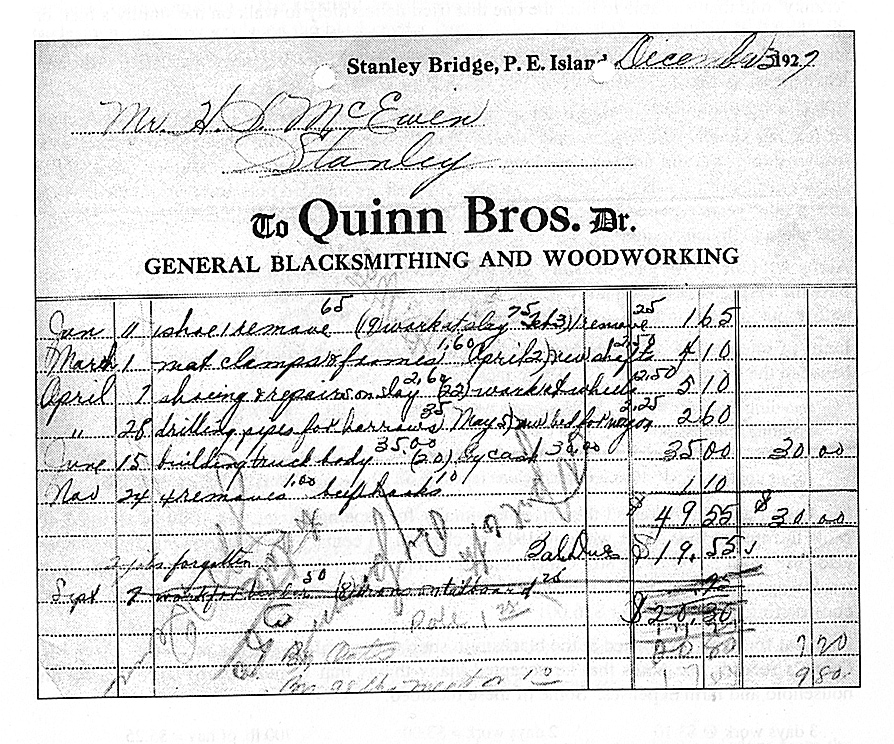 Stanley Bridge, P. E. Island, December 3 1927
Mr. H. S. McEwen
Stanley
To Quinn Bros. Dr.
GENERAL BLACKSMITHING AND WOODWORKING
Jan 11 shoe 1 remove 65 work at sley 75 Feb 3) 1 remove 25 1 65
March 1 mat clamps & frames 1,60 April 2) new shafts 2,50 4 10
April 7 shoeing & repairs on slay 2,60 (22) work at wheels 2,50 5 10
" 28 drilling pipes for harrows 35 May 5) new bed for wagon 2,25 2 60
June 15 building truck body 35.00 (20) by cash 30.00 35 00 30 00
Nov 24 4 removes 1.00 beef hooks 10 1 10
$ 49 55 $ 30 00
forgotten Bal Due $ 19.55
Sept 50 (8) 25 75
$ 20.30
Pole 1 25
By
7 20
9 80